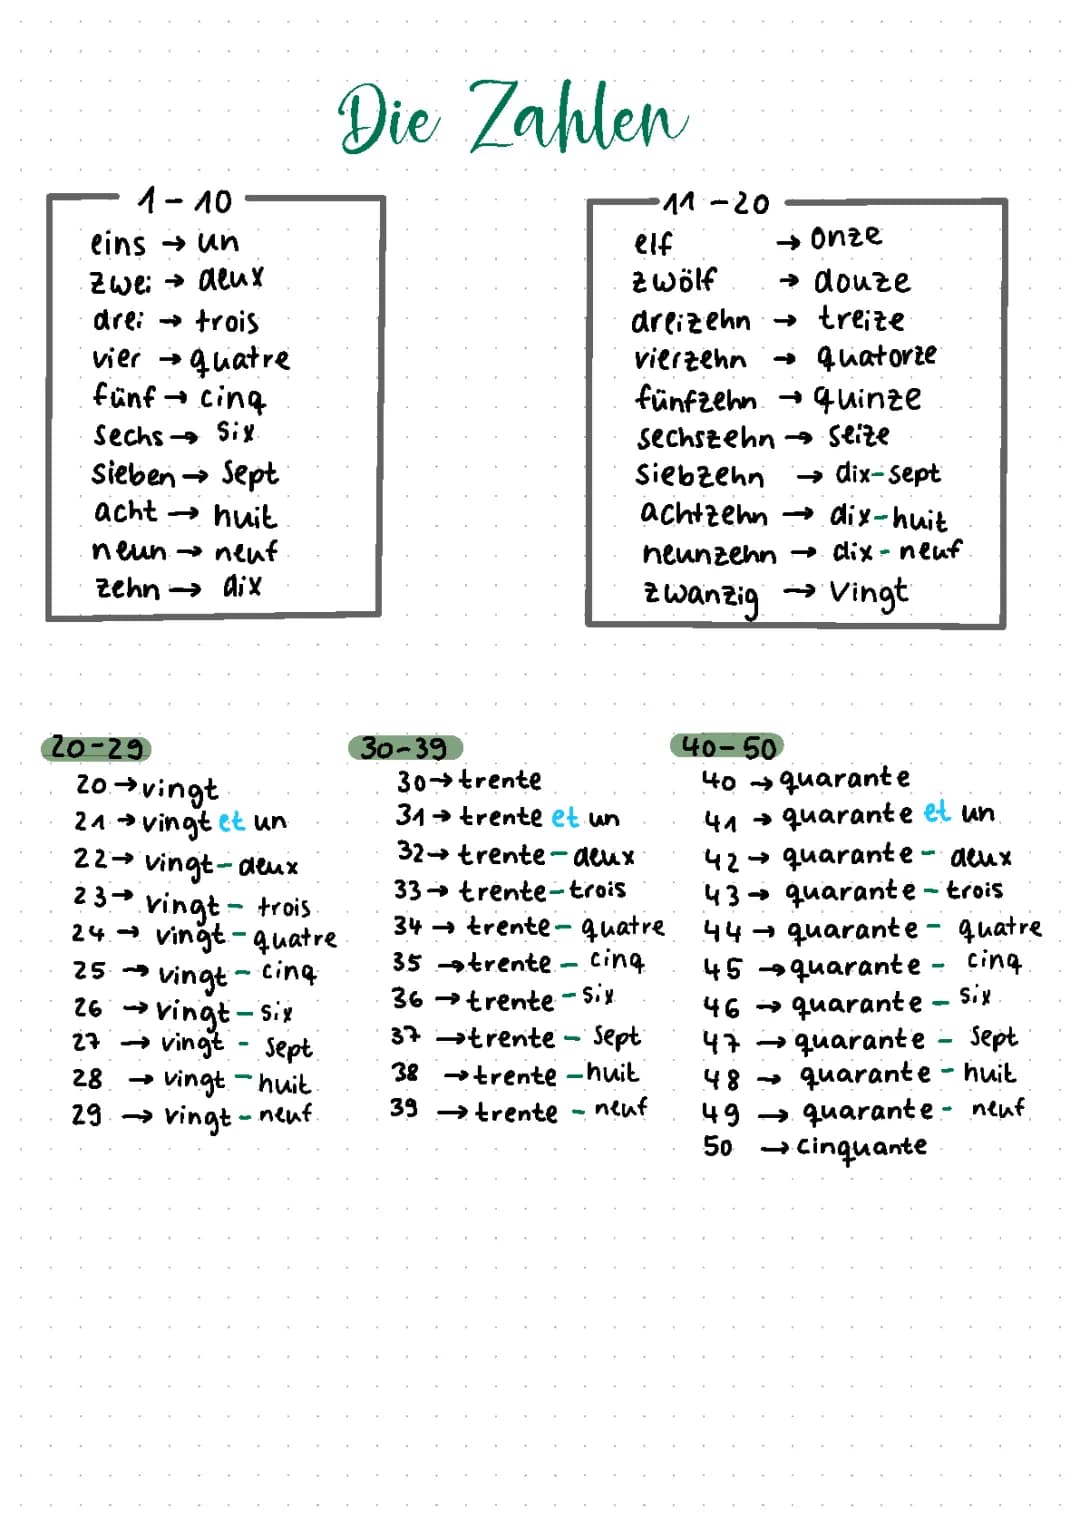 Die Zahlen
1-10
eins → un
zwei → deux
drei → trois
vier → quatre
fünf → cinq
sechs → six
sieben → sept
acht → huit
neun → neuf
zehn → dix
11-20
elf → onze
zwölf → douze
dreizehn → treize
vierzehn → quatorze
fünfzehn → quinze
sechszehn → seize
siebzehn → dix-sept
achtzehn → dix-huit
neunzehn → dix-neuf
zwanzig → vingt
20-29
20 → vingt
21 → vingt et un
22 → vingt-deux
23 → vingt-trois
24 → vingt-quatre
25 → vingt-cinq
26 → vingt-six
27 → vingt-sept
28 → vingt-huit
29 → vingt-neuf
30-39
30 → trente
31 → trente et un
32 → trente-deux
33 → trente-trois
34 → trente-quatre
35 → trente-cinq
36 → trente-six
37 → trente-sept
38 → trente-huit
39 → trente-neuf
40-50
40 → quarante
41 → quarante et un
42 → quarante-deux
43 → quarante-trois
44 → quarante-quatre
45 → quarante-cinq
46 → quarante-six
47 → quarante-sept
48 → quarante-huit
49 → quarante-neuf
50 → cinquante